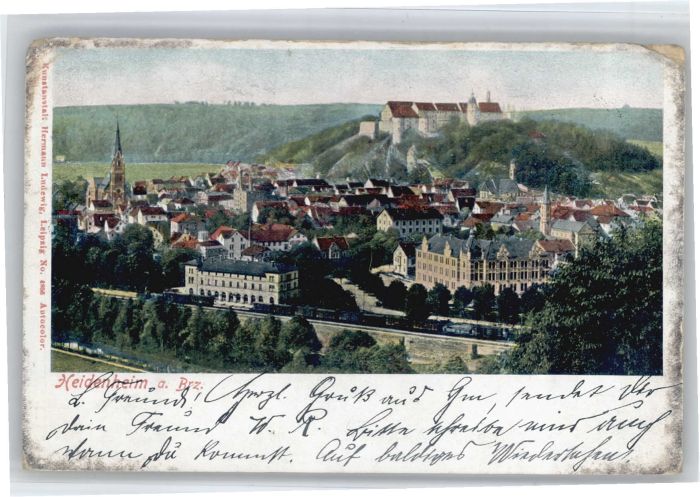 Kunstanstalt Hermann Ludewig, Leipzig No. Autocolor.
Heidenheim a. Brz.
L. Freund! Herzl. Gruß aus Gm, sendet Dir
Dein Freund W. R. Bitte schreibe mir auch
wann Du kommst. Auf baldiges Wiedersehen!